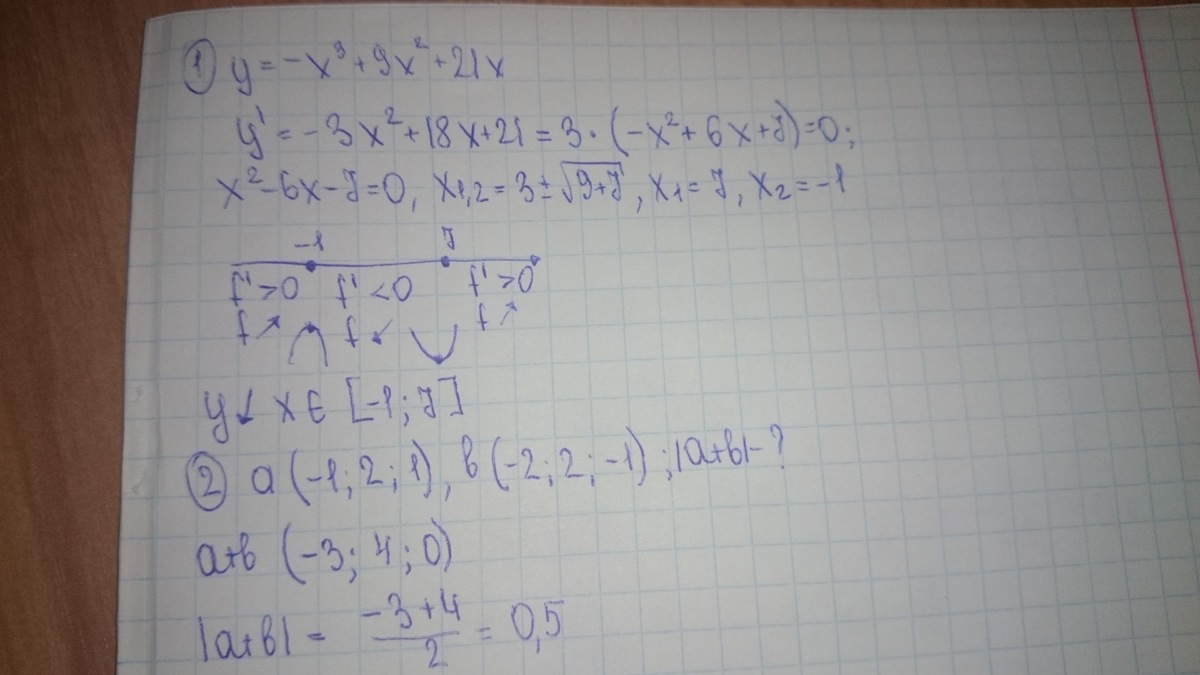 ① y = -x³ + 9x² + 21x
y' = -3x² + 18x + 21 = 3·(-x² + 6x + 7) = 0;
x² - 6x - 7 = 0, x₁,₂ = 3 ± √9+7, x₁ = 7, x₂ = -1
-1 7
f' > 0 f' < 0 f' > 0
f ↗ f ↙ f ↗
y ↙ x ∈ [-1; 7]
② a (-1; 2; 1), b (-2; 2; -1); |a+b| - ?
a+b (-3; 4; 0)
|a+b| = (-3+4)/2 = 0,5